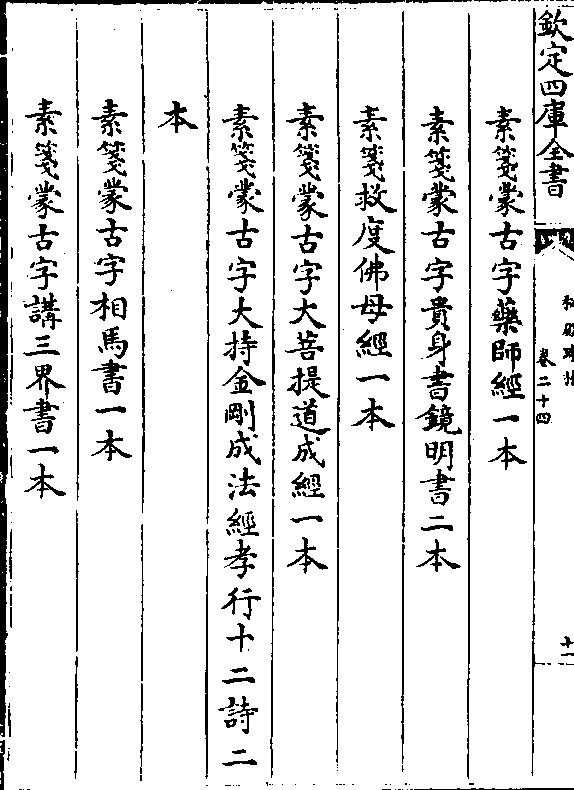 欽定四庫全書
卷二十四
十一
素箋蒙古字藥師經一本
素箋蒙古字貴身書鏡明書二本
素箋救度佛母經一本
素箋蒙古字大菩提道成經一本
素箋蒙古字大持金剛成法經孝行十二詩二
本
素箋蒙古字相馬書一本
素箋蒙古字講三界書一本